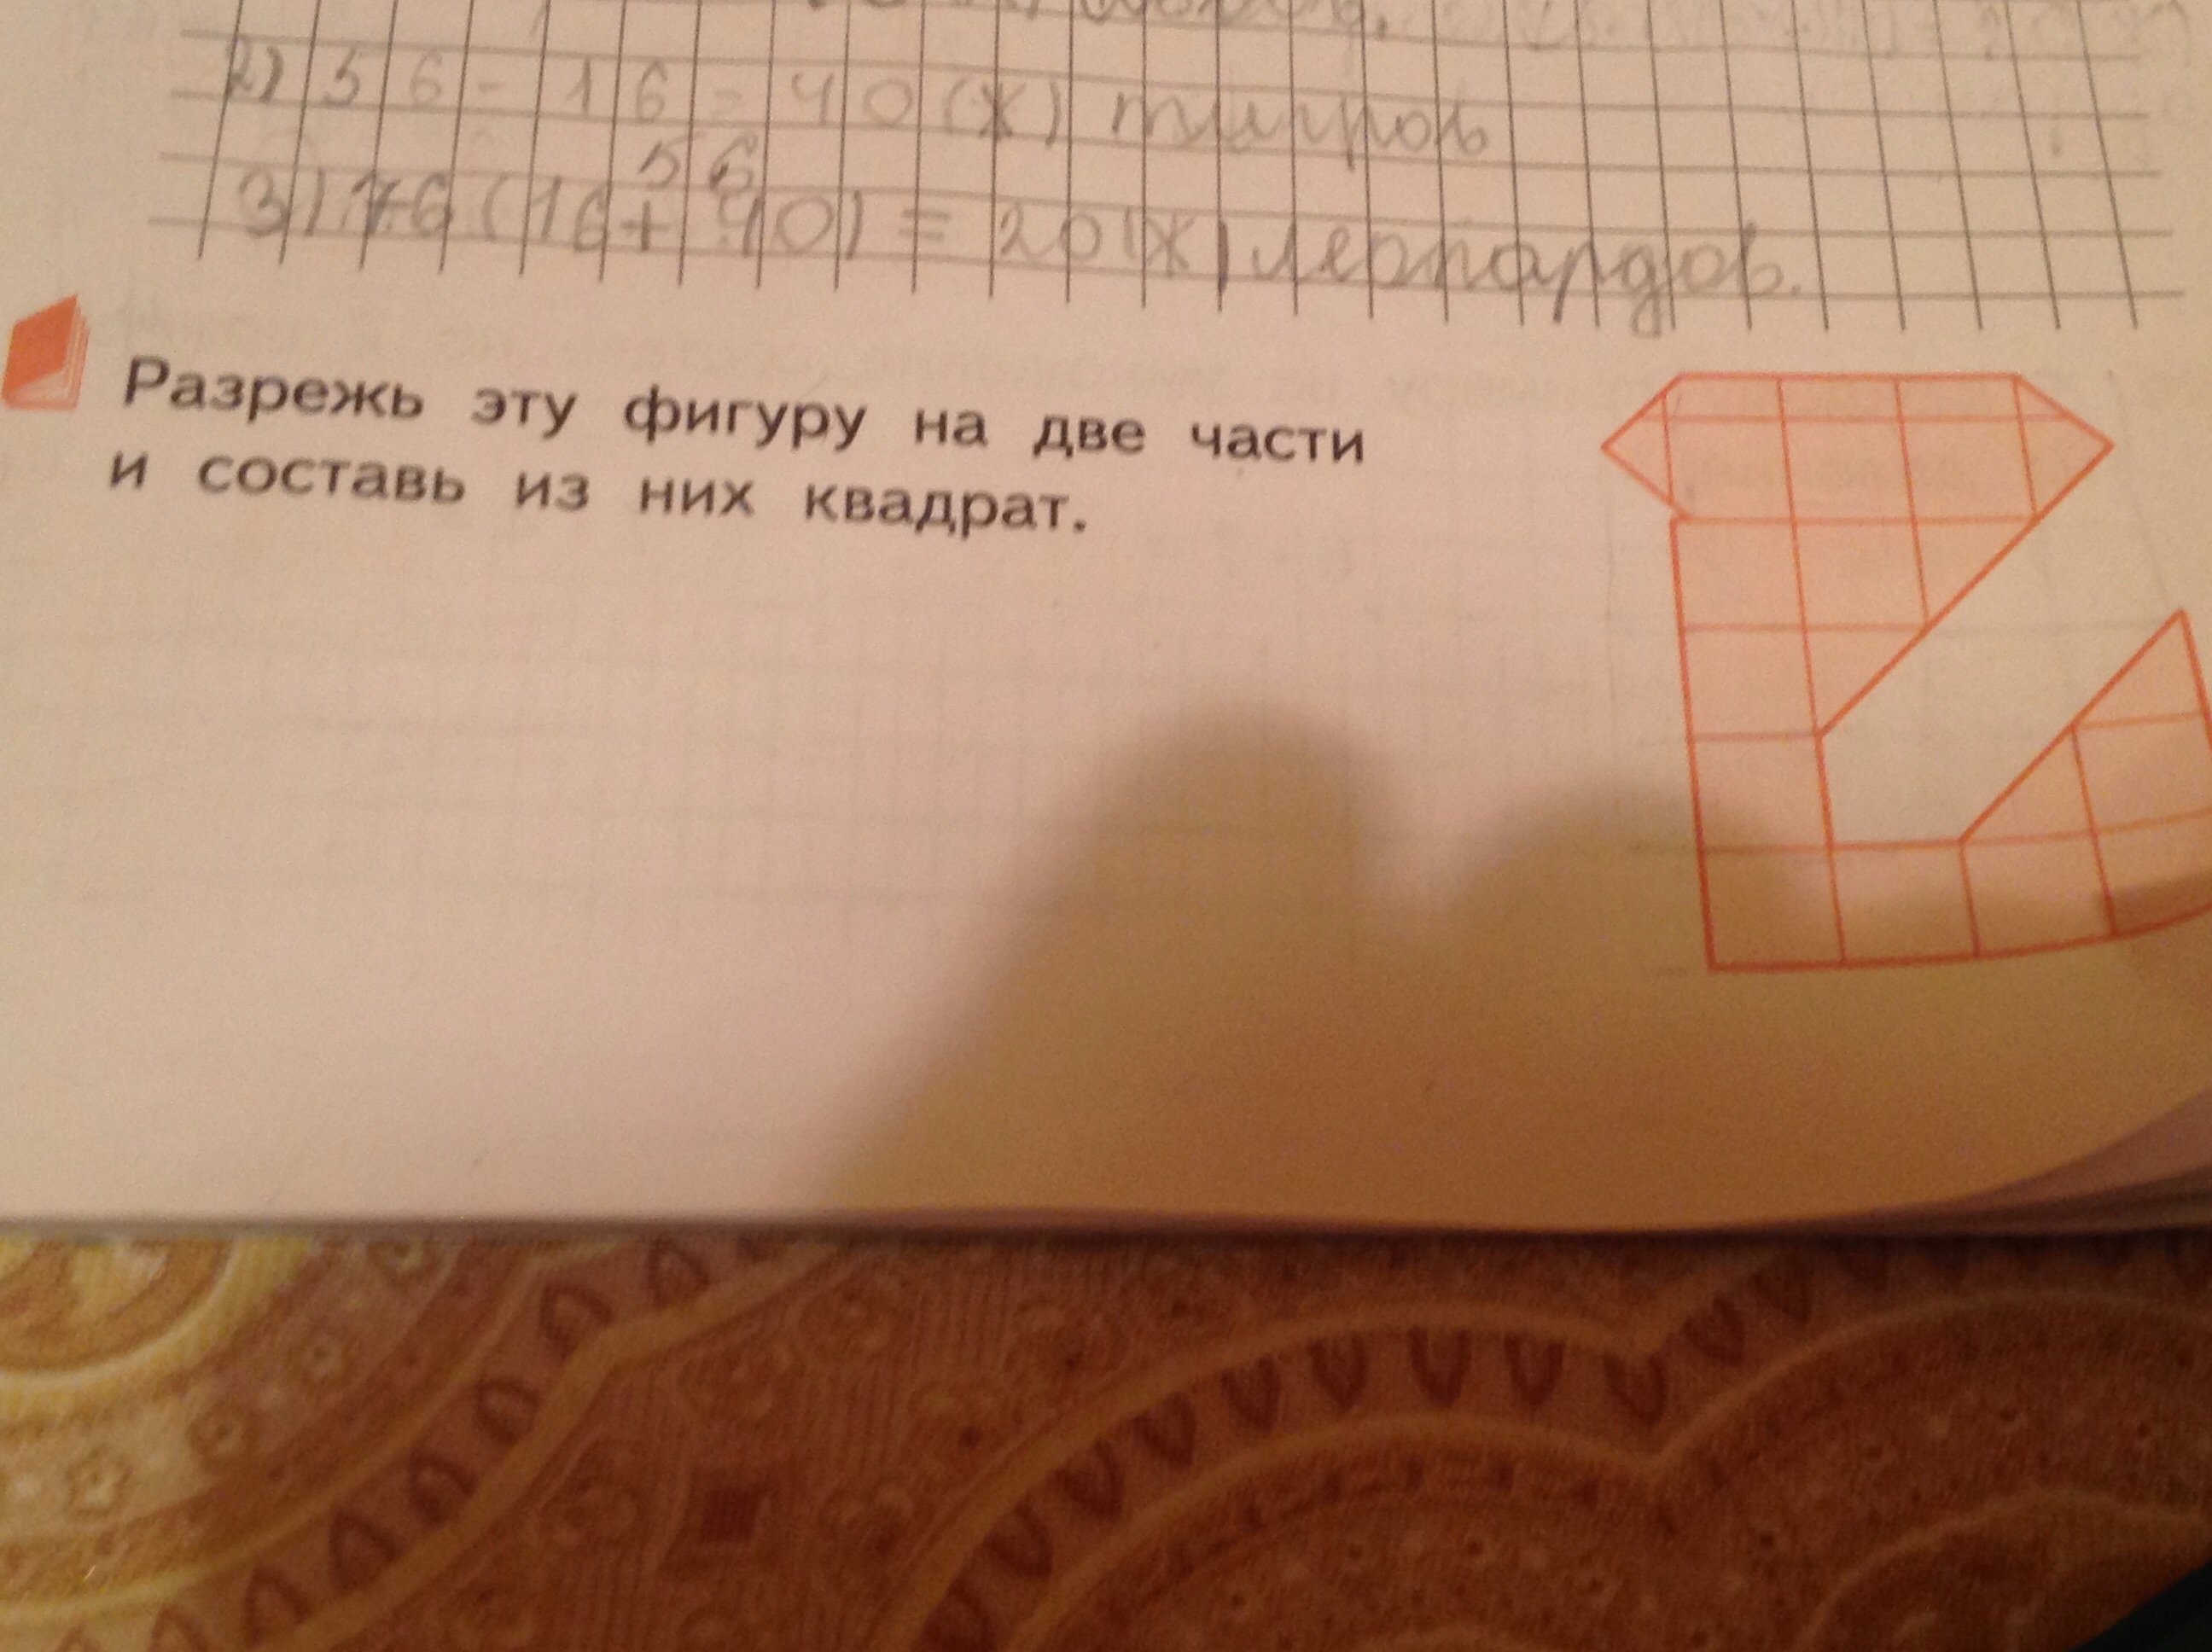 2) 56 - 16 = 40 (ж) тигров
56
3) 76 (16 + 40) = 20 (ж) леопардов.
Разрежь эту фигуру на две части
и составь из них квадрат.